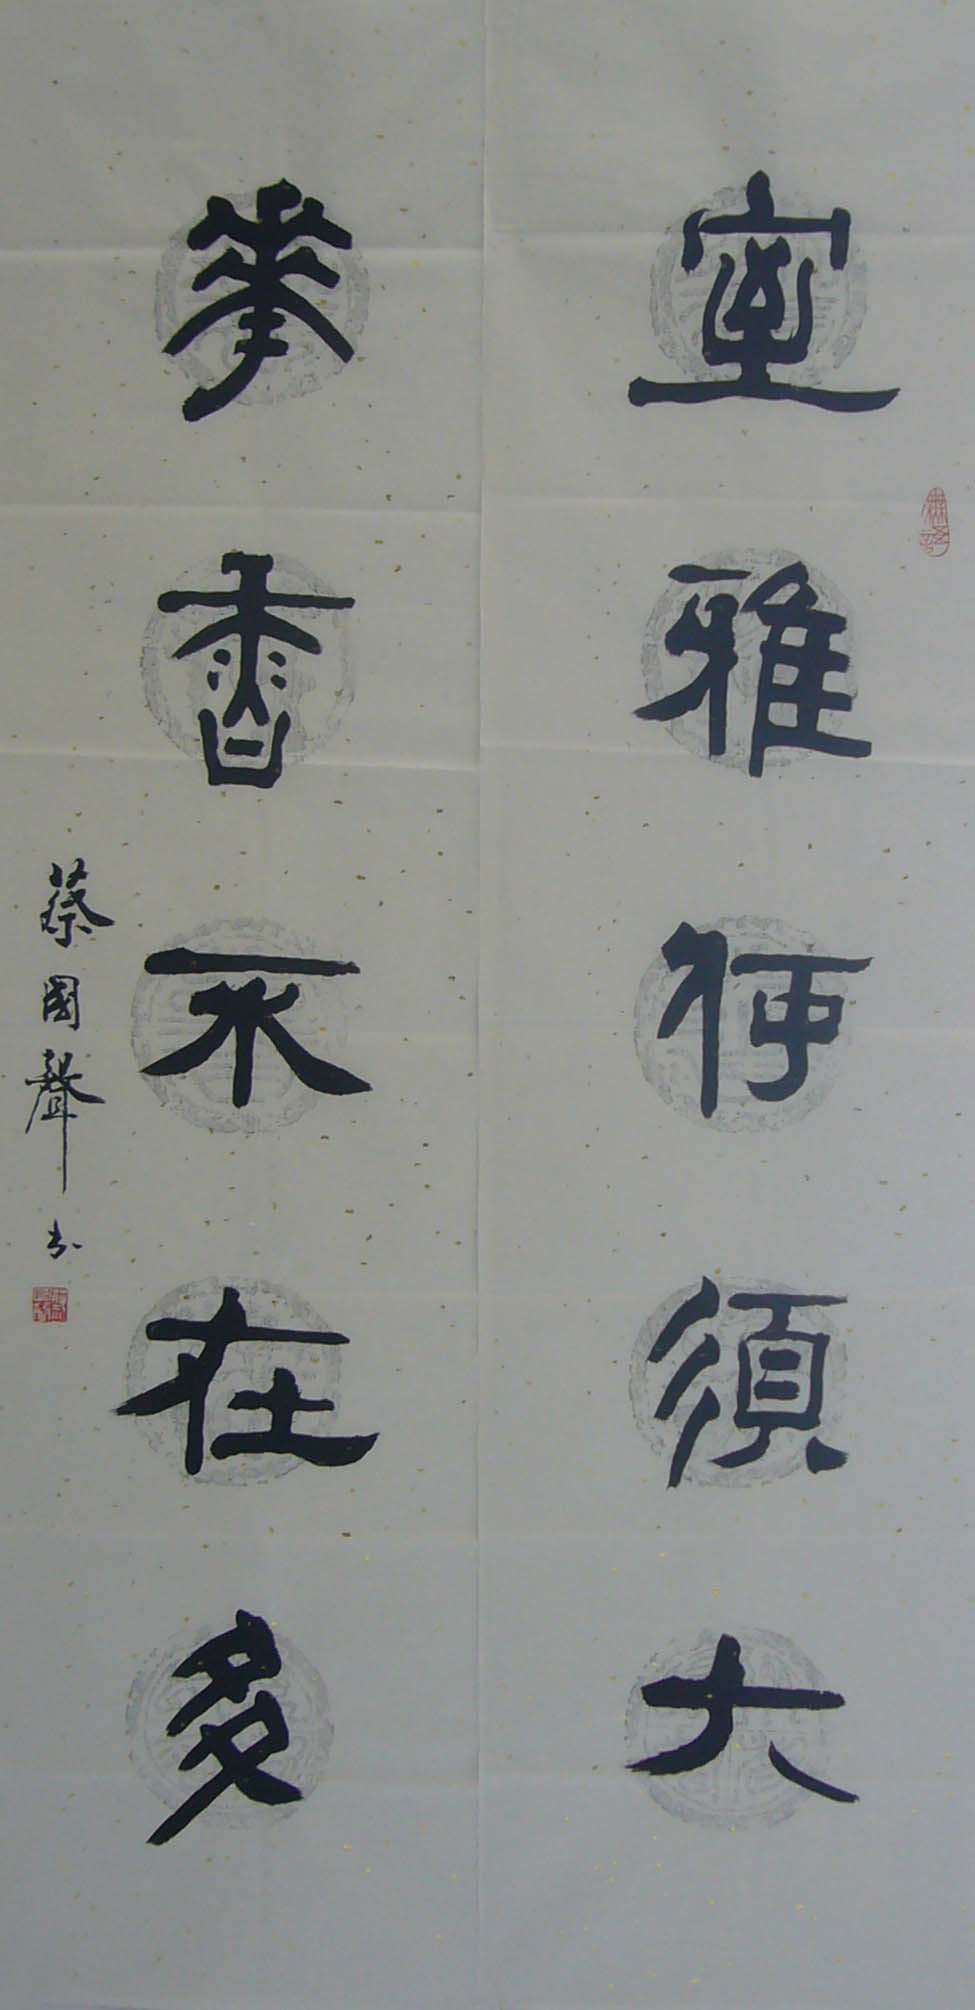 室雅何須大
花香不在多
蔡國聲书